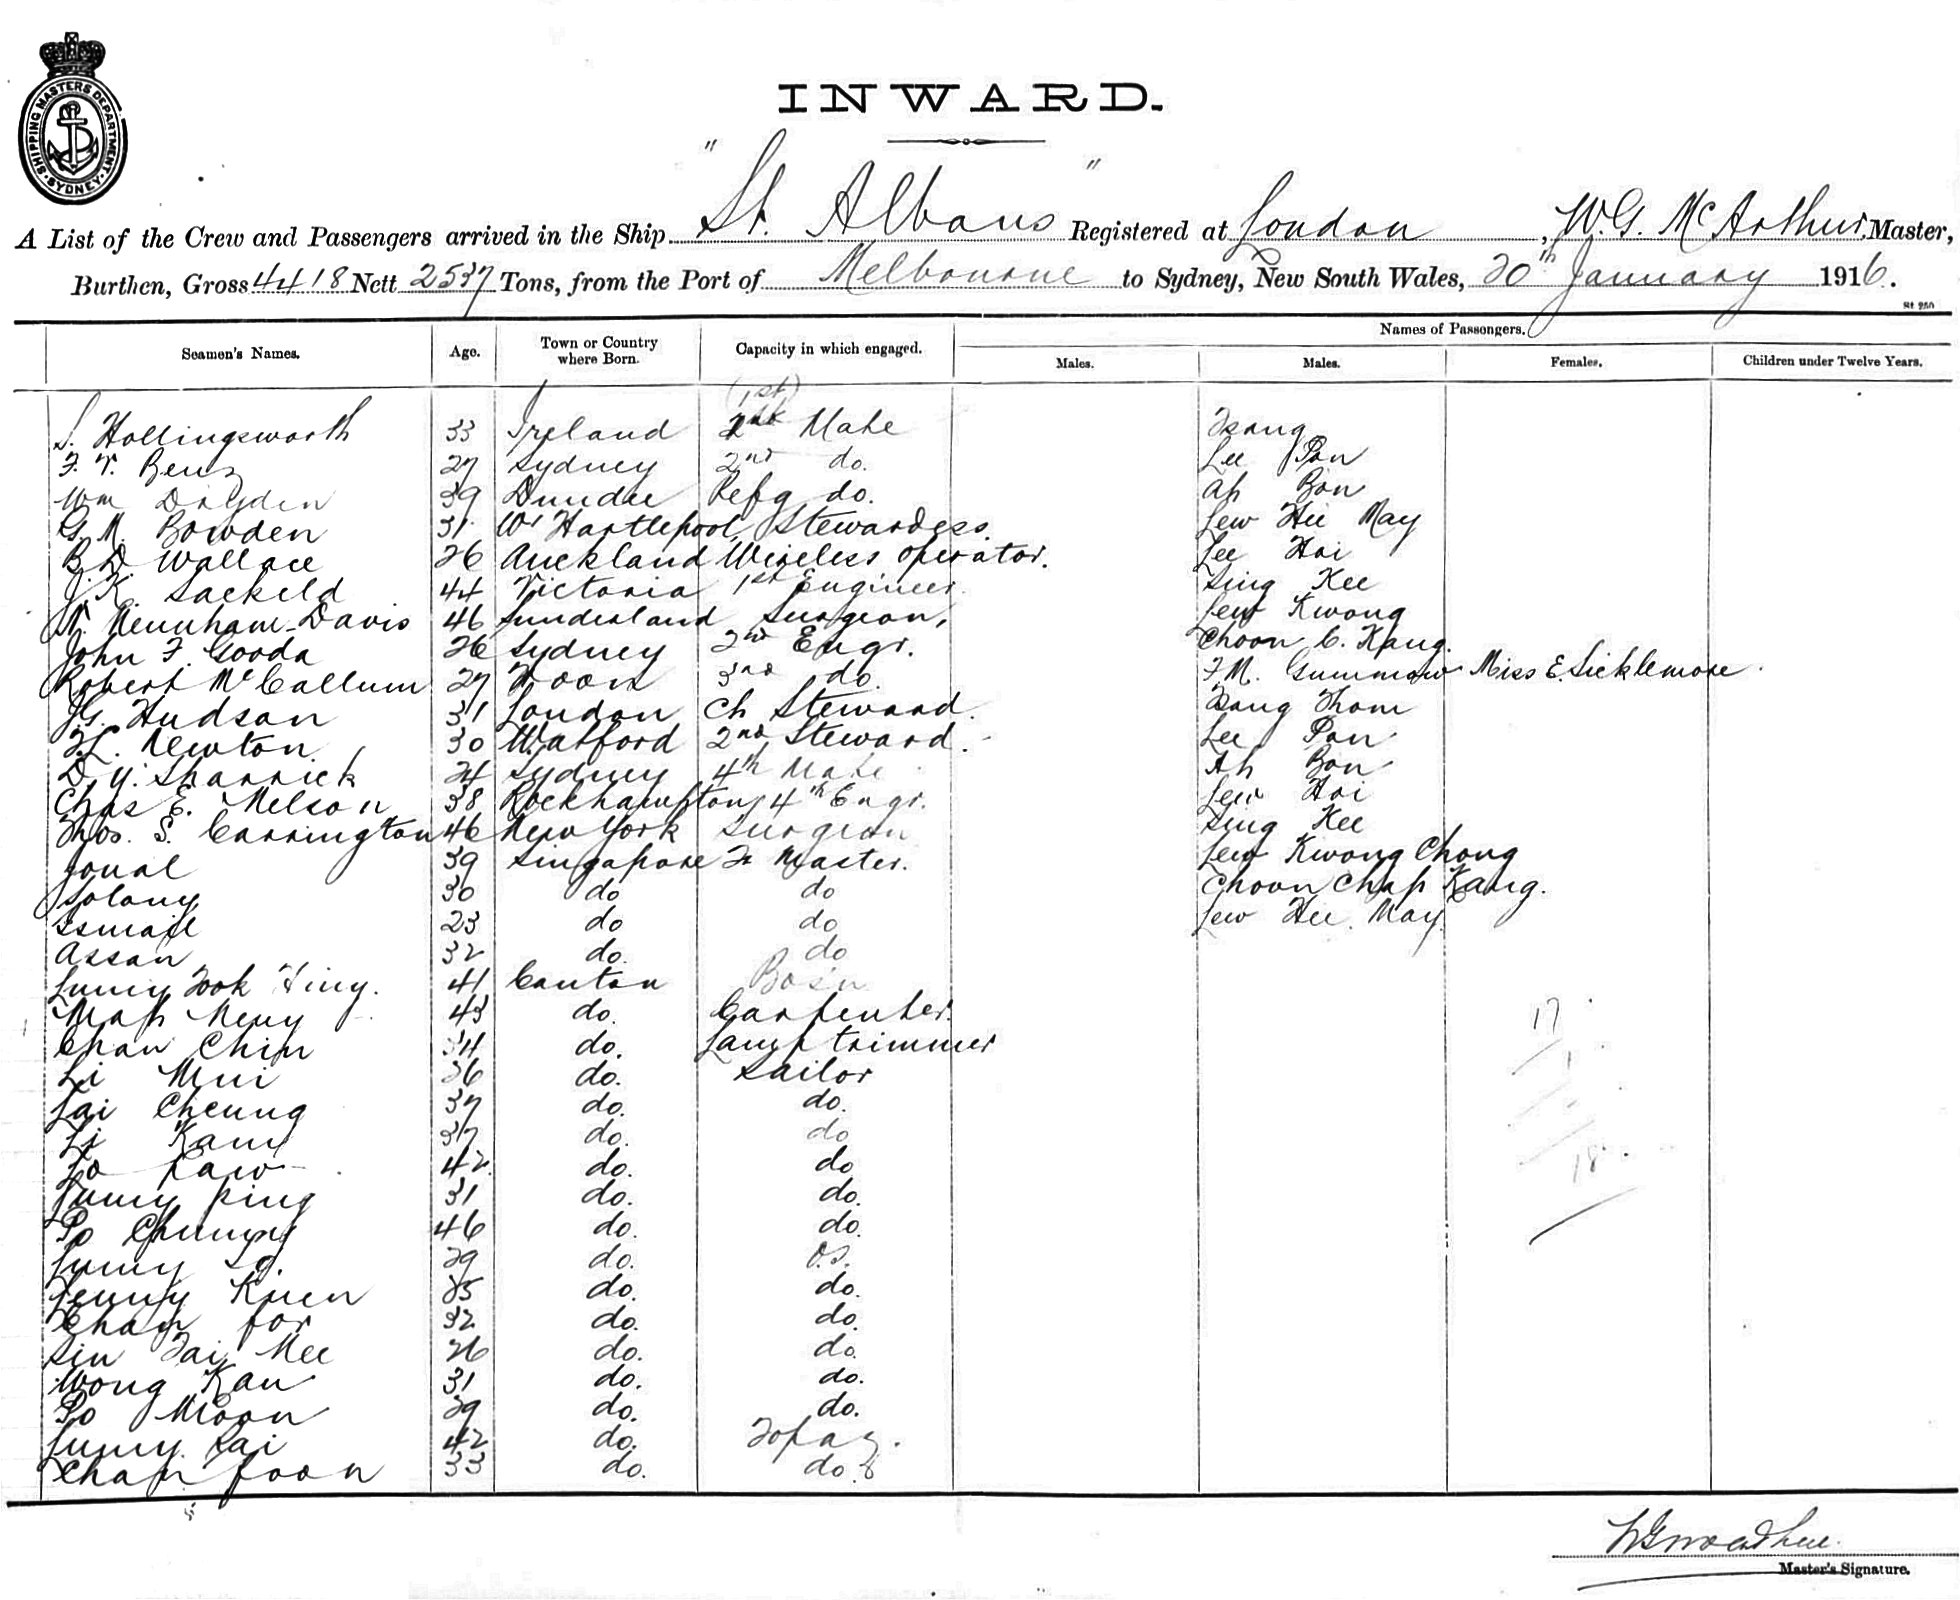 SHIPPING MASTERS DEPARTMENT. SYDNEY
INWARD.
A List of the Crew and Passengers arrived in the Ship "St. Albans" Registered at London, W.G. McArthur, Master,
Burthen, Gross 4418 Nett 2537 Tons, from the Port of Melbourne to Sydney, New South Wales, 20th January 1916.
St 250
Names of Passengers.
Seamen's Names. Age. Town or Country where Born. Capacity in which engaged. Males. Males. Females. Children under Twelve Years.
(1st)
S. Hollingsworth 33 Ireland Mate Tsang
F. V. Benz 27 Sydney 2nd do. Lee Pan
Wm Dryden 39 Dundee Refg do. Ah Bon
G. M. Bowden 31 W. Hartlepool, Stewardess. Lew Hee May
B. D. Wallace 26 Auckland Wireless operator. Lee Hoi
J. K. Sackeld 44 Victoria 1st Engineer. Sing Kee
N. Newnham-Davis 46 Sunderland Surgeon, Lew Kwong
John F. Gooda 26 Sydney 2nd Engr. Choon C. Kang.
Robert McCallum 27 Troon 3rd do. F.M. Gummow Miss E. Sicklemore.
J.G. Hudson 31 London Ch Steward. Tsang Thom
F.L. Newton. 30 Watford 2nd Steward. Lee Pan
D. Y. Sharrick 24 Sydney 4th Mate Ah Bon
Chas E. Nelson 38 Rockhampton 4th Engr. Lew Hoi
Thos. S. Carrington 46 New York Surgeon Sing Kee
Jonal 39 Singapore Qr Master. Lew Kwong Chong
Solony 30 do do Choon Chap Kang.
Ismail 23 do do Lew Hee May
Assan 32 do. do
Lung Fook Hing. 41 Canton Bos'n
Mak Meng 43 do. Carpenter.
Chan Chin 34 do. Lamp trimmer
Li Mui 36 do. Sailor
Lai Cheung 37 do. do.
Li Kang 37 do. do
Lo Kaw 42 do. do
Lung Ping 31 do. do.
Po Cheung 46 do. do.
Lung So. 29 do. O.S.
Leung Kuen 25 do. do.
Chan for 32 do. do.
Sin Tai Mee 26 do. do.
Wong Kau 31 do. do.
Po Moon 29 do. do.
Lung Kai 42 do. Topaz.
Chan foon 33 do. do.
17
1
18
Master's Signature.